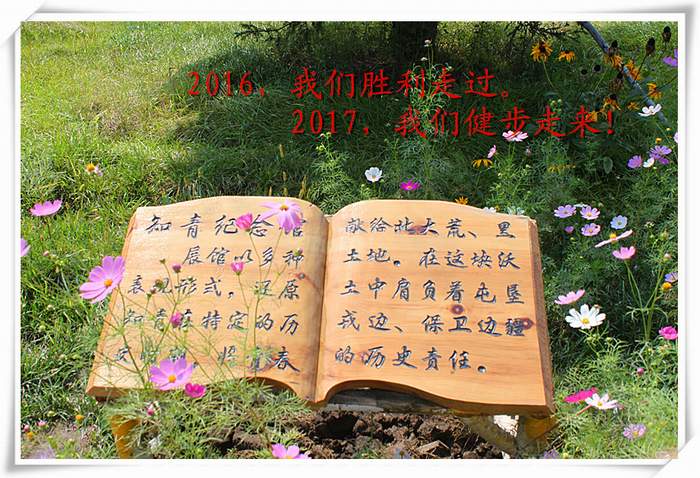 2016，我们胜利走过。
2017，我们健步走来！
知青纪念馆
展馆以多种
表现形式，还原
知青在特定的历
史时期，将青春
献给北大荒、黑
土地。在这块沃
土中肩负着屯垦
戍边、保卫边疆
的历史责任。